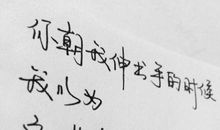 你朝我伸出手的时候
我以为